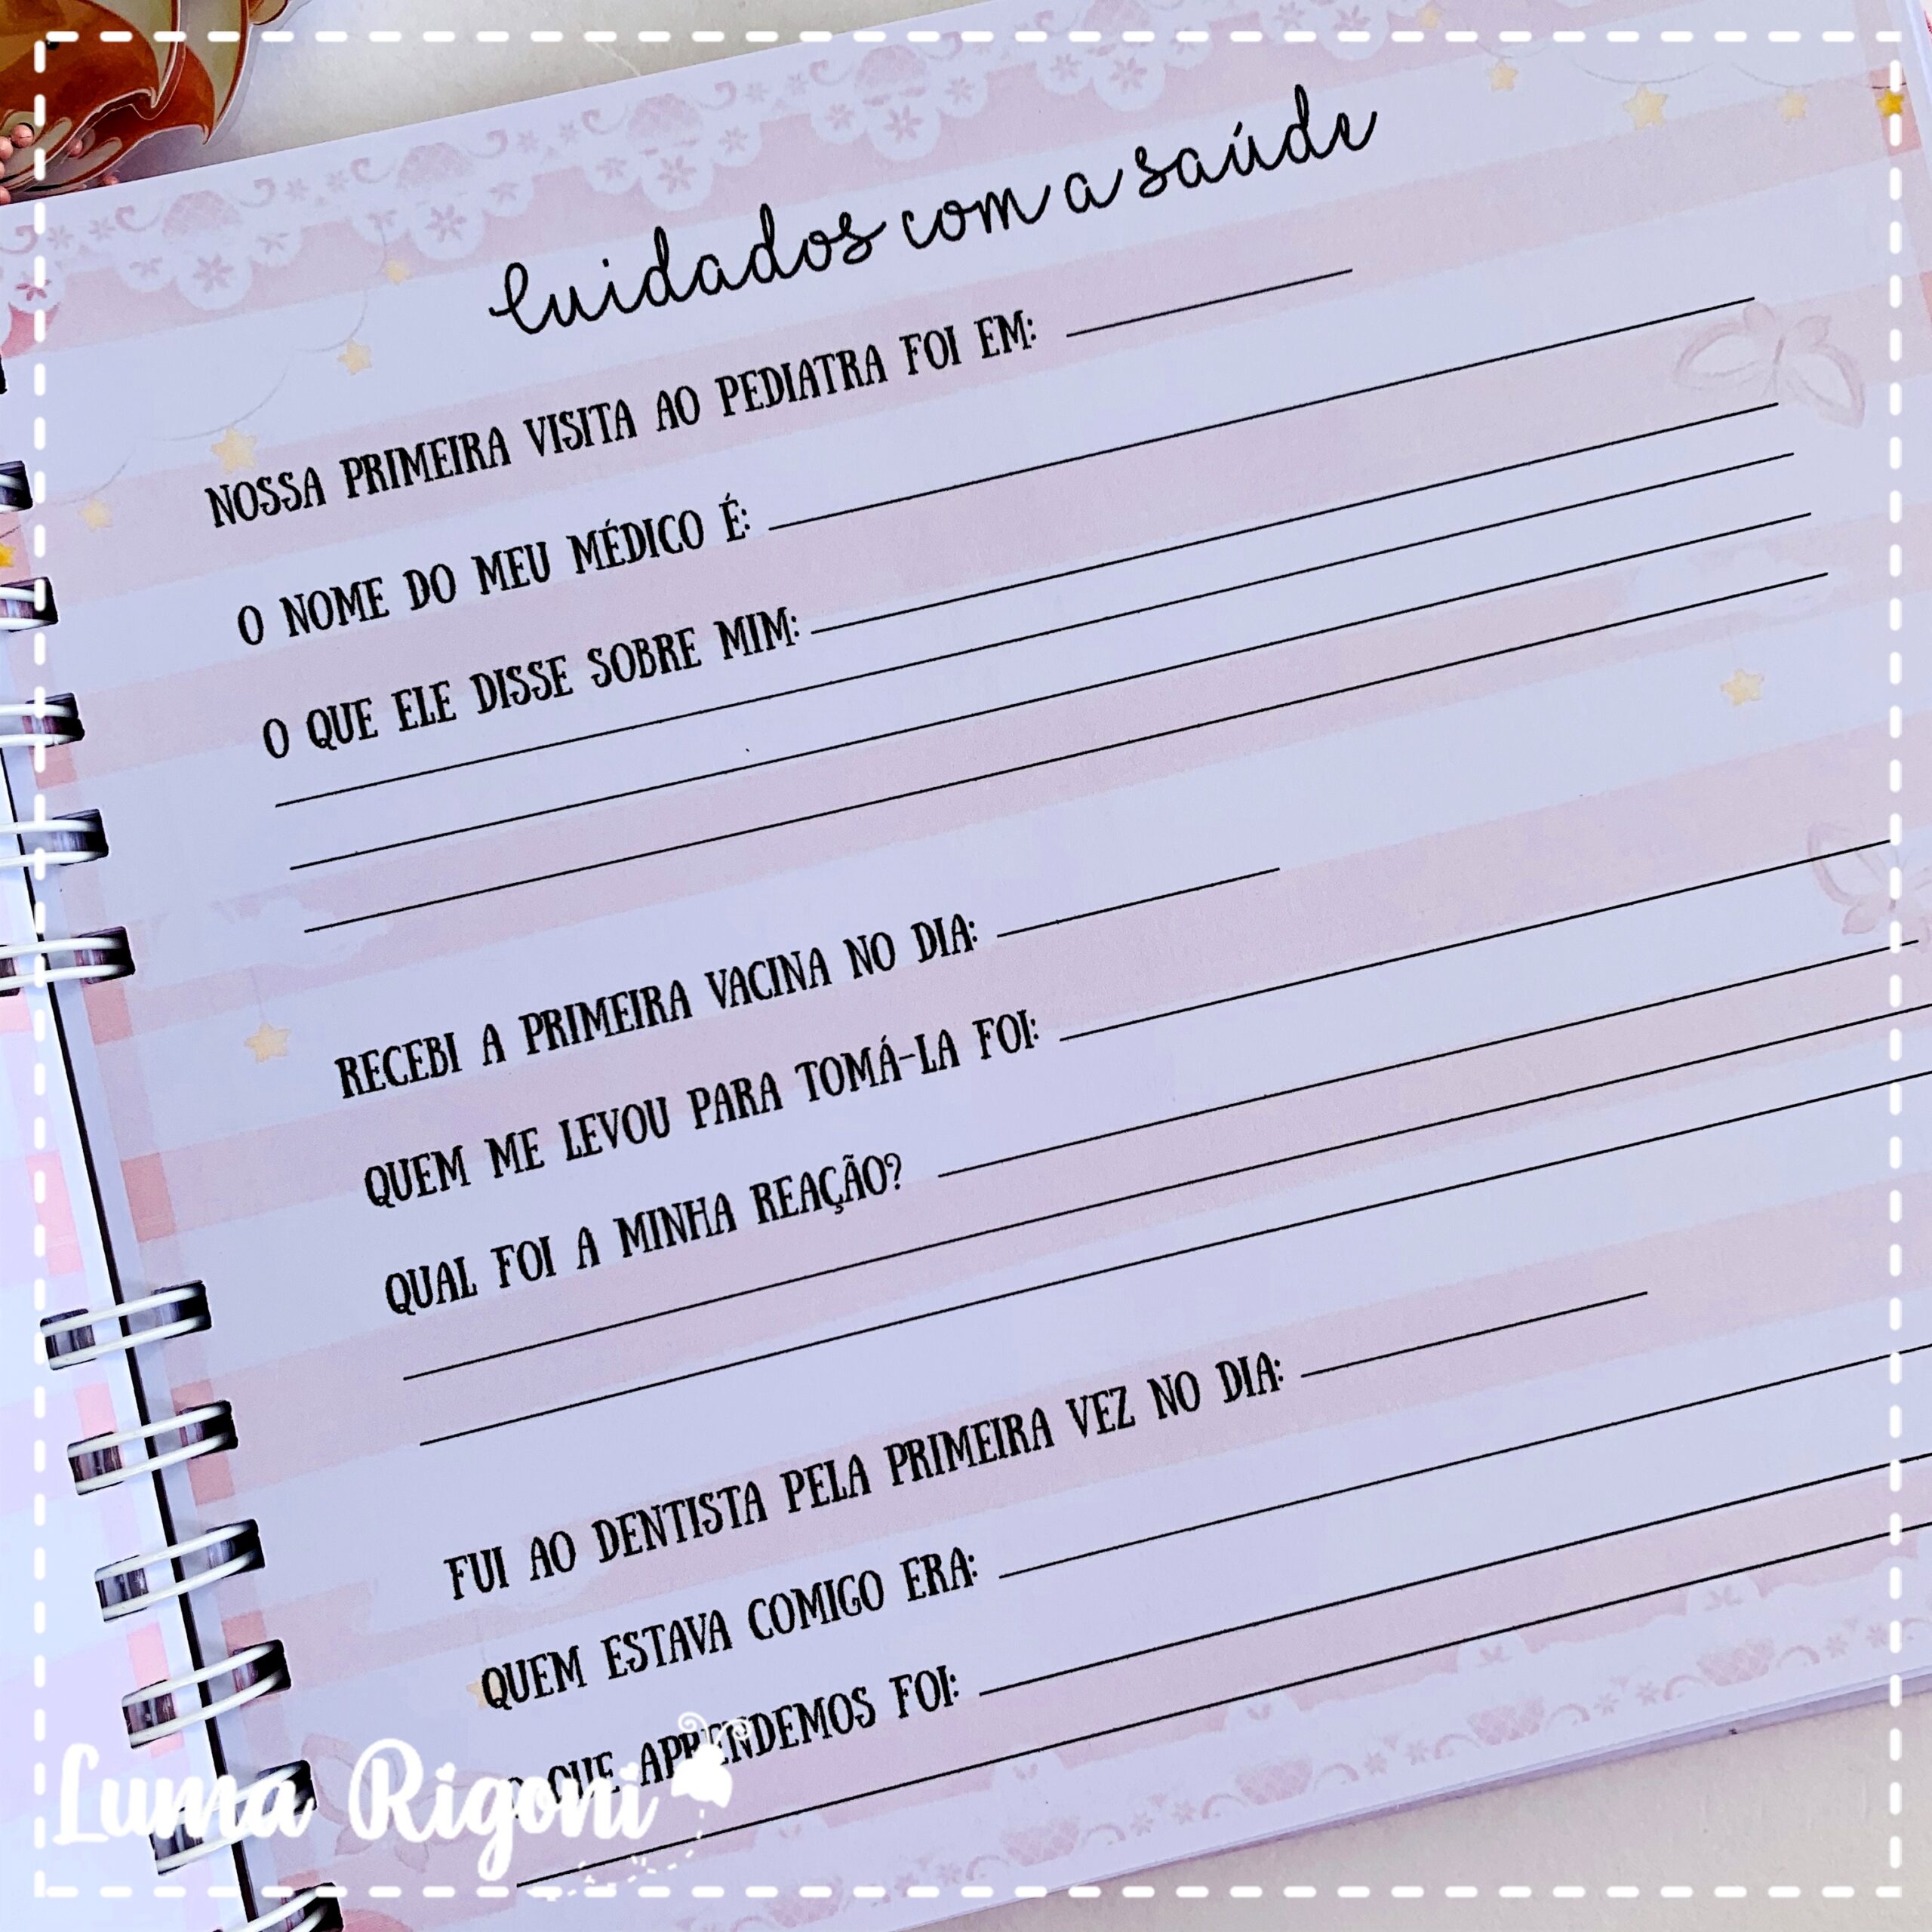 Cuidados com a saúde
NOSSA PRIMEIRA VISITA AO PEDIATRA FOI EM:
O NOME DO MEU MÉDICO É:
O QUE ELE DISSE SOBRE MIM:
RECEBI A PRIMEIRA VACINA NO DIA:
QUEM ME LEVOU PARA TOMÁ-LA FOI:
QUAL FOI A MINHA REAÇÃO?
FUI AO DENTISTA PELA PRIMEIRA VEZ NO DIA:
QUEM ESTAVA COMIGO ERA:
O QUE APRENDEMOS FOI:
Luma Rigoni